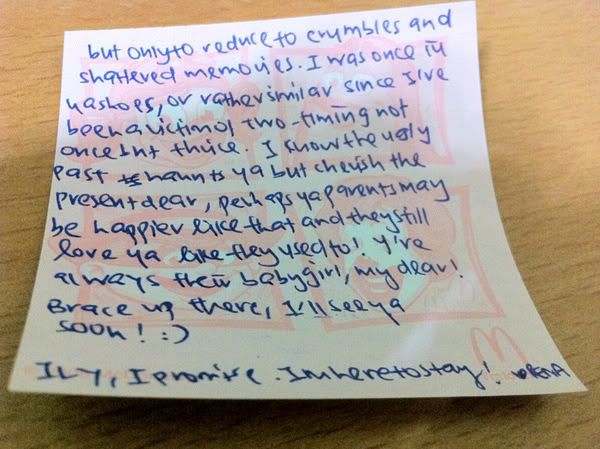 but only to reduce to crumbles and
shattered memories. I was once in
ya shoes, or rather similar since I've
been a victim of two-timing not
once but thrice. I know the ugly
past haunts ya but cherish the
present dear, perhaps ya parents may
be happier like that and they still
love ya like they used to! y're
always their babygirl, my dear!
Brace up there, I'll see ya
soon! :)
ILY, I promise. Im here to stay!